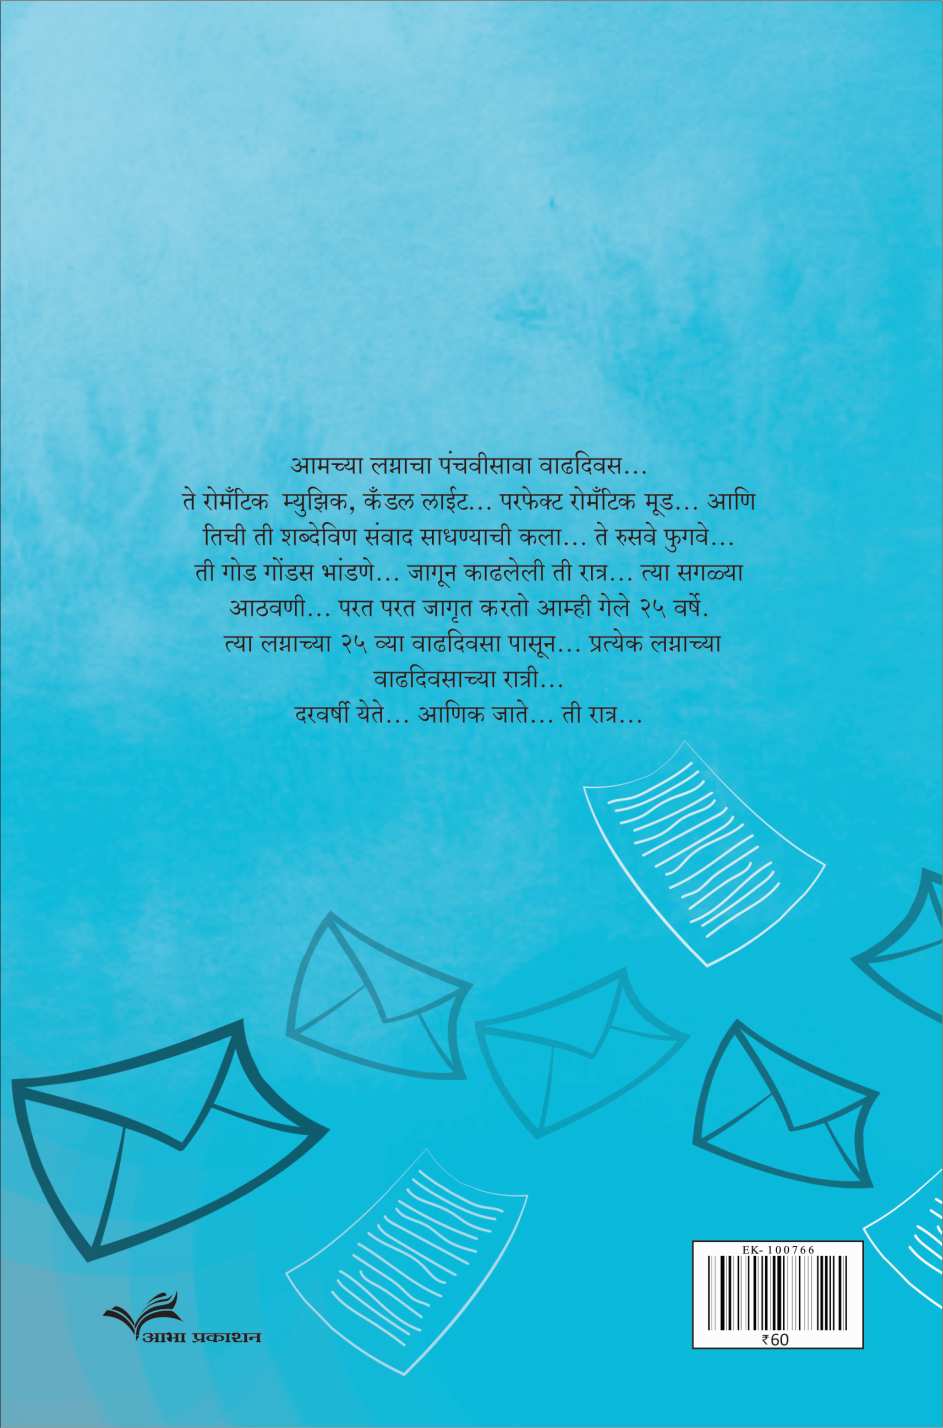 आमच्या लग्नाचा पंचवीसावा वाढदिवस...
ते रोमँटिक म्युझिक, कँडल लाईट... परफेक्ट रोमँटिक मूड... आणि
तिची ती शब्देविण संवाद साधण्याची कला... ते रुसवे फुगवे...
ती गोड गोंडस भांडणे... जागून काढलेली ती रात्र... त्या सगळ्या
आठवणी... परत परत जागृत करतो आम्ही गेले २५ वर्षे.
त्या लग्नाच्या २५ व्या वाढदिवसा पासून... प्रत्येक लग्नाच्या
वाढदिवसाच्या रात्री...
दरवर्षी येते... आणिक जाते... ती रात्र...
EK-100766
₹60
आभा प्रकाशन